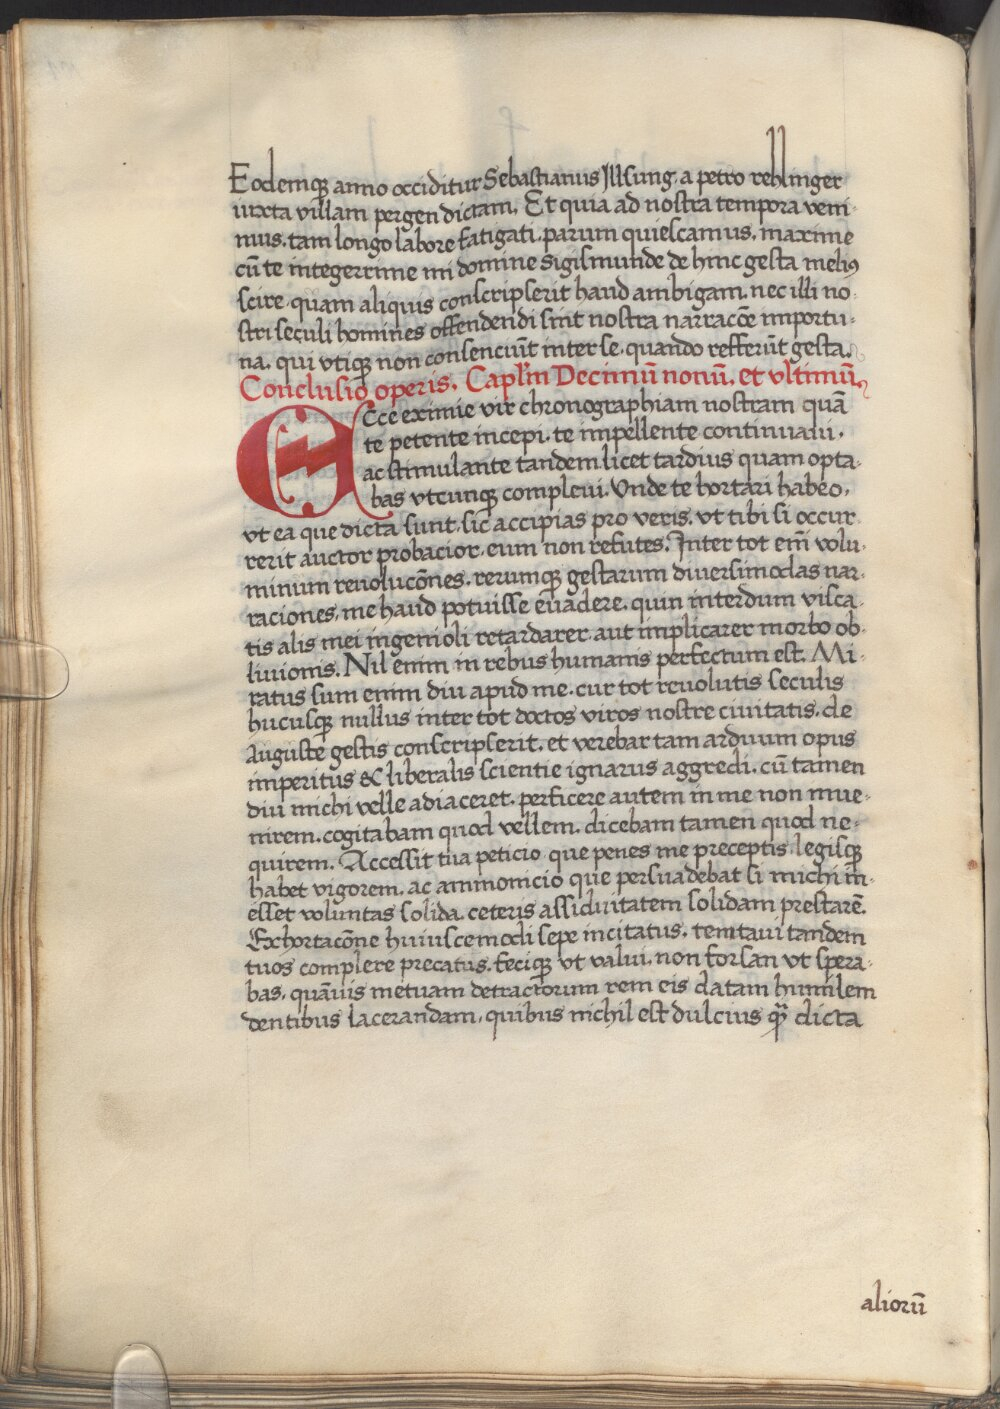 Eodemq̃ anno occiditur Sebastianus Jllsung, a petro rehlinger
iuxta villam pergen dictam. Et quia ad nostra tempora veni-
mus, tam longo labore fatigati, parum quiescamus, maxime
cū te integerrime mi domine Sigismunde de hinc gesta meliꝰ
scire, quam aliquis conscripserit haud ambigam, nec illi no-
stri seculi homines offendendi sint nostra narracōe importu-
na, qui vtiq̃ non consenciūt inter se, quando refferūt gesta.
Conclusio operis. Capl̄m Decimū nonū, et vltimū
Ecce eximie vir chronographiam nostram quā
te petente incepi, te impellente continuaui,
ac stimulante tandem licet tardius quam opta-
bas vtcunq̃ compleui. Unde te hortari habeo,
vt ea que dicta sunt, sic accipias pro veris, vt tibi si occur-
rerit auctor probacior, eum non refutes. Inter tot em̄ volu-
minum reuolucōnes, rerumq̃ gestarum diuersimodas nar-
raciones, me haud potuisse euadere, quin interdum visca-
tis alis mei ingenioli retardarer, aut implicarer morbo ob-
liuionis. Nil enim in rebus humanis perfectum est. Mi-
ratus sum enim diu apud me, cur tot reuolutis seculis
hucusq̃ nullus inter tot doctos viros nostre ciuitatis, de
Auguste gestis conscripserit, et verebar tam arduum opus
imperitus & liberalis scientie ignarus aggredi, cū tamen
diu michi velle adiaceret, perficere autem in me non inue-
nirem, cogitabam quod vellem, dicebam tamen quod ne-
quirem. Accessit tua peticio que penes me preceptis legisq̃
habet vigorem, ac ammonicio que persuadebat si michi in-
esset voluntas solida, ceteris assiduitatem solidam prestarē.
Exhortacōne huiuscemodi sepe incitatus, temtaui tandem
tuos complere precatus, feciq̃ vt valui, non forsan vt spera-
bas, quāuis metuam detractorum rem eis datam humilem
dentibus lacerandam, quibus nichil est dulcius q̄ dicta
aliorū